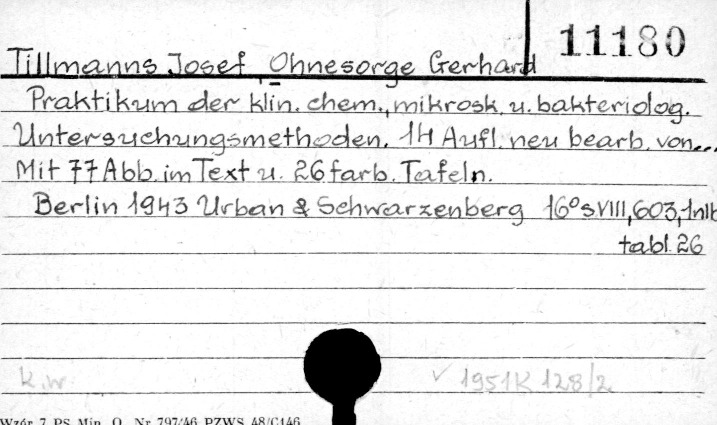 11180
Tillmanns Josef, Ohnesorge Gerhard
Praktikum der klin. chem., mikrosk. u. bakteriolog.
Untersuchungsmethoden. 14 Aufl. neu bearb. von...
Mit 77 Abb. im Text u. 26 farb. Tafeln.
Berlin 1943 Urban & Schwarzenberg 16° s. VIII, 603, 1 nlb
tabl. 26
k.w. ✓ 1951K 128/2
Wzór 7 PS Min. O. Nr 797/46 PZWS 48/C146